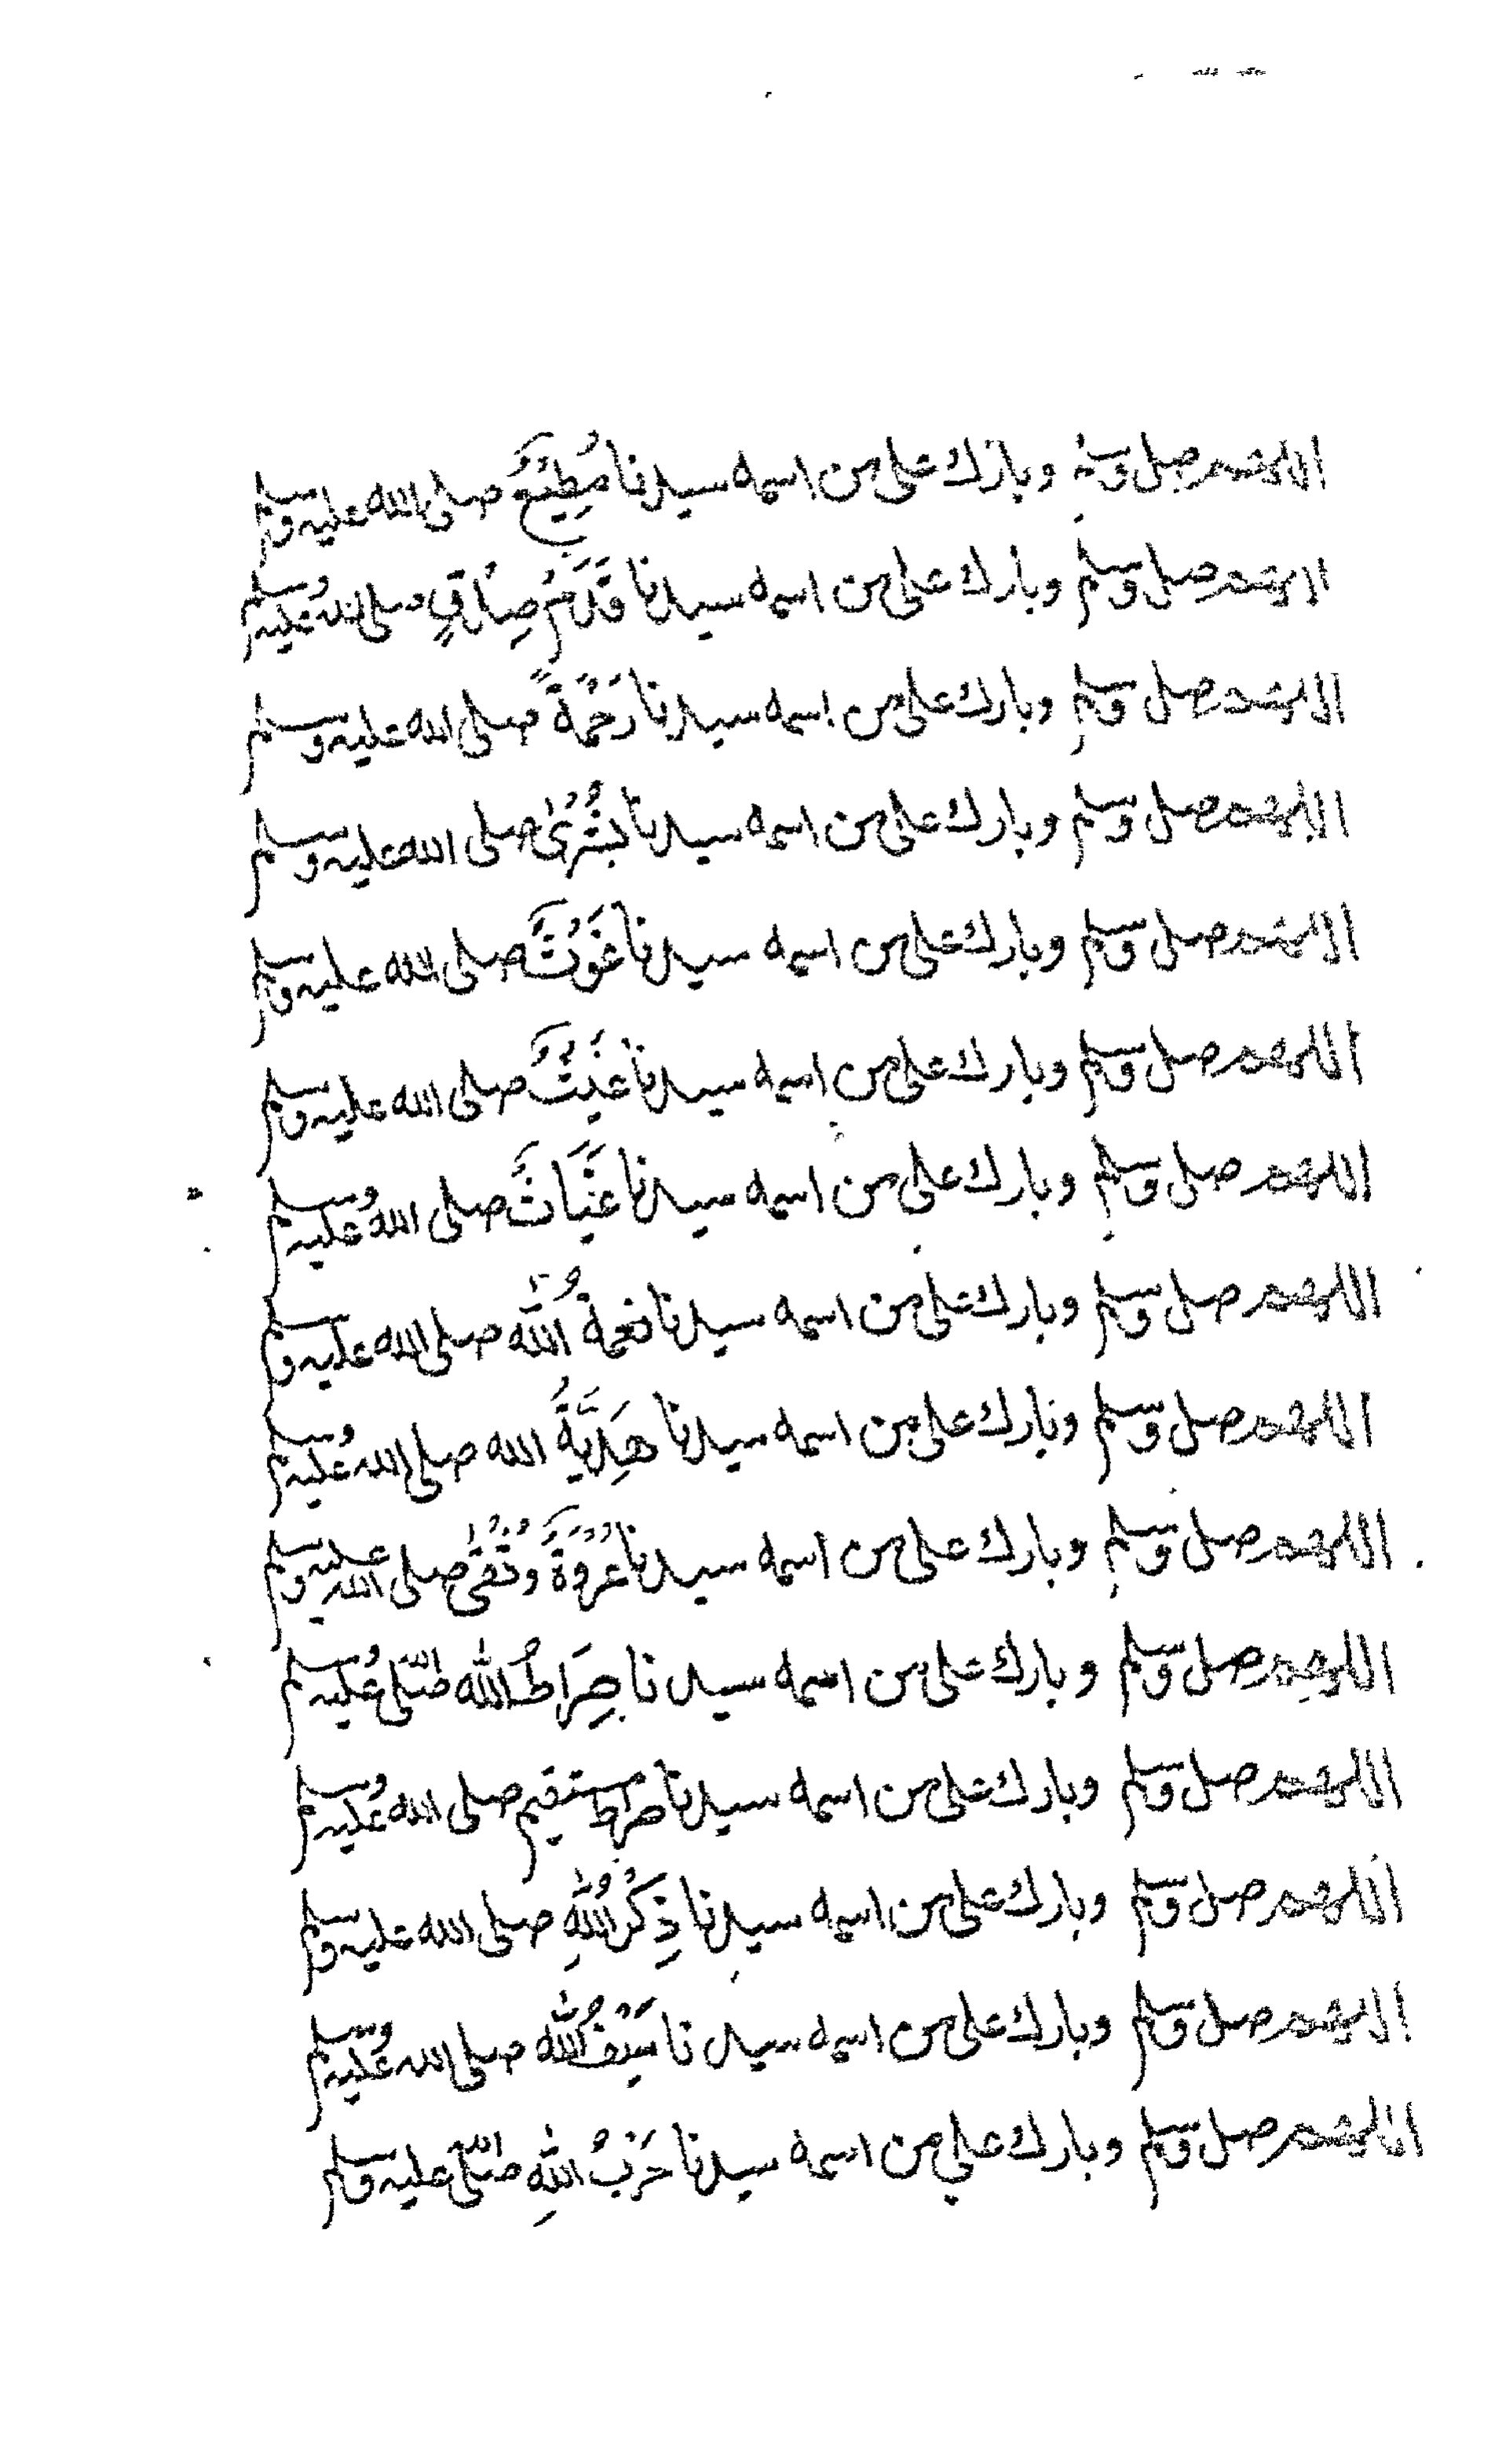 اللهم صل وسلم وبارك على من اسمه سيدنا مُطِيعٌ صلى الله عليه وسلم
اللهم صل وسلم وبارك على من اسمه سيدنا قَدَمُ صِدْقٍ صلى الله عليه وسلم
اللهم صل وسلم وبارك على من اسمه سيدنا رَحْمَةٌ صلى الله عليه وسلم
اللهم صل وسلم وبارك على من اسمه سيدنا بُشْرَىٰ صلى الله عليه وسلم
اللهم صل وسلم وبارك على من اسمه سيدنا غَوْثٌ صلى الله عليه وسلم
اللهم صل وسلم وبارك على من اسمه سيدنا غَيْثٌ صلى الله عليه وسلم
اللهم صل وسلم وبارك على من اسمه سيدنا غَيَاثٌ صلى الله عليه وسلم
اللهم صل وسلم وبارك على من اسمه سيدنا نعمةُ اللّٰه صلى الله عليه وسلم
اللهم صل وسلم وبارك على من اسمه سيدنا هَدِيَّةُ الله صلى الله عليه وسلم
اللهم صل وسلم وبارك على من اسمه سيدنا عُرْوَةٌ وُثْقَىٰ صلى الله عليه وسلم
اللهم صل وسلم وبارك على من اسمه سيدنا صِرَاطُ اللّٰه صلى الله عليه وسلم
اللهم صل وسلم وبارك على من اسمه سيدنا صراط مستقيم صلى الله عليه وسلم
اللهم صل وسلم وبارك على من اسمه سيدنا ذِكْرُ اللّٰهِ صلى الله عليه وسلم
اللهم صل وسلم وبارك على من اسمه سيدنا سَيْفُ اللّٰه صلى الله عليه وسلم
اللهم صل وسلم وبارك على من اسمه سيدنا حَزْبُ اللّٰهِ صلى الله عليه وسلم